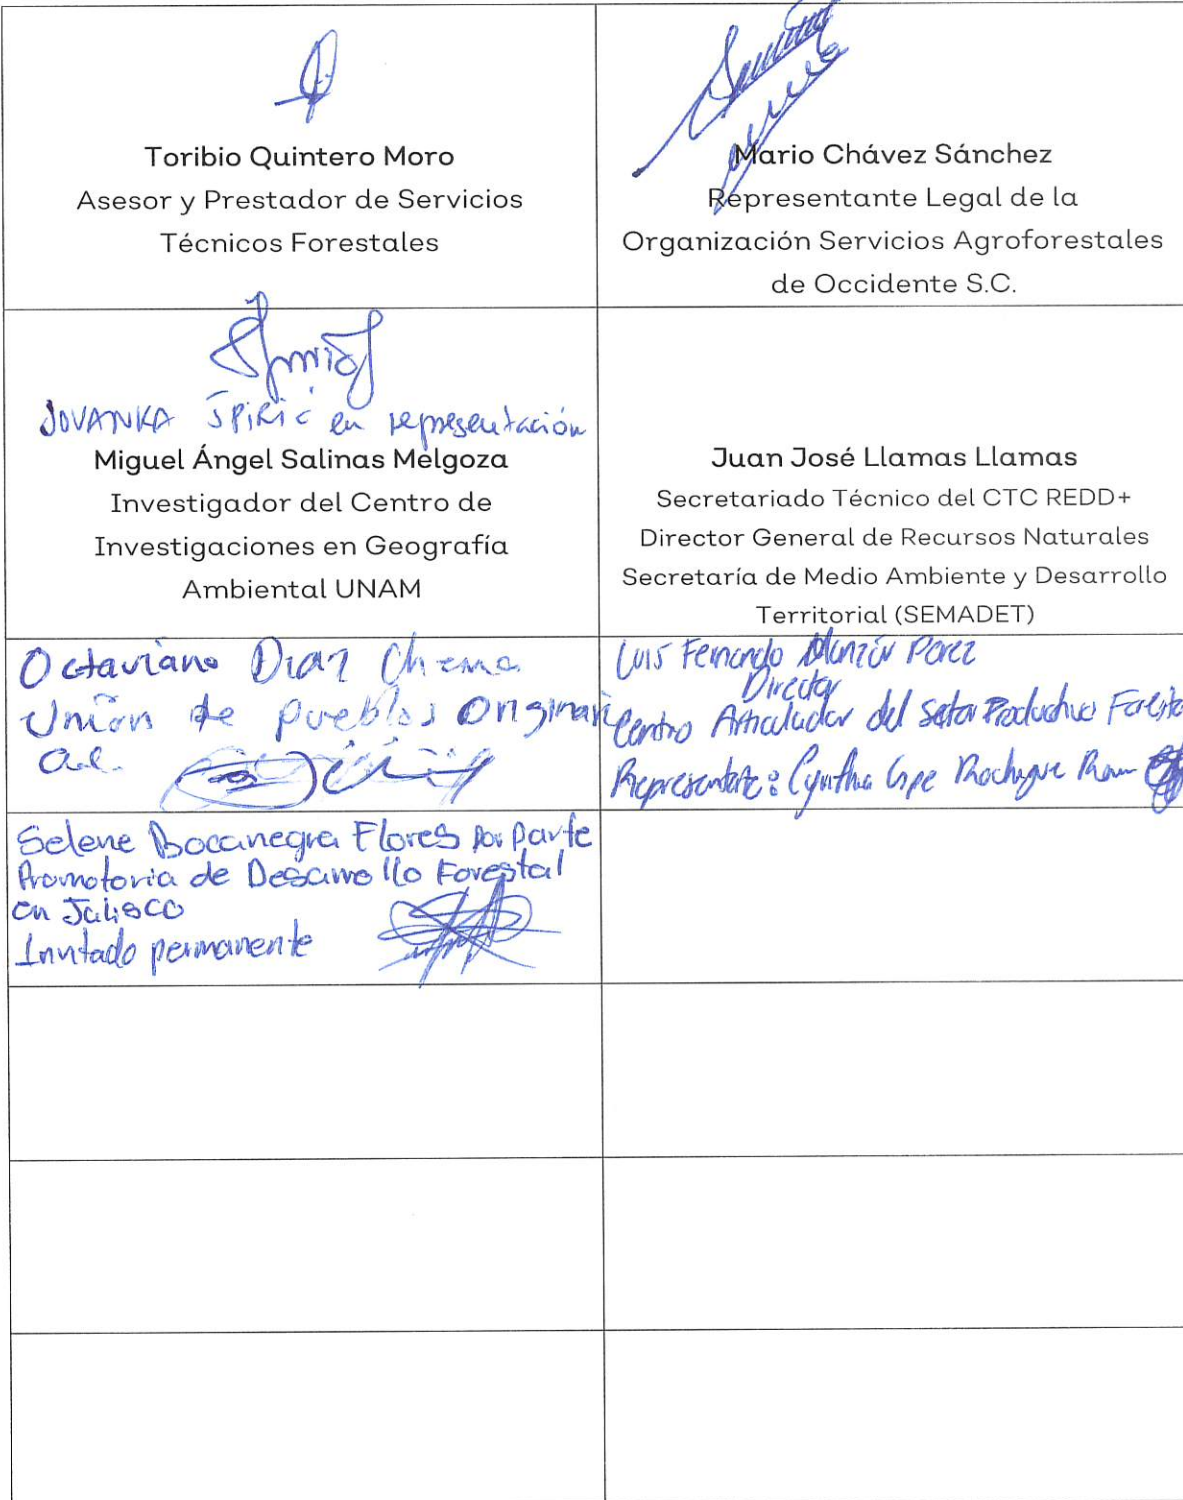 Toribio Quintero Moro
Asesor y Prestador de Servicios
Técnicos Forestales
Mario Chávez Sánchez
Representante Legal de la
Organización Servicios Agroforestales
de Occidente S.C.
JOVANKA SPIRIC en representación
Miguel Ángel Salinas Melgoza
Investigador del Centro de
Investigaciones en Geografía
Ambiental UNAM
Juan José Llamas Llamas
Secretariado Técnico del CTC REDD+
Director General de Recursos Naturales
Secretaría de Medio Ambiente y Desarrollo
Territorial (SEMADET)
Octaviano Diaz Chema
Unión de pueblos Originari
a.c.
Luis Fernando Pérez
Director
Centro Articulador del Setor Productivo Foresta
Representante: Cynthia Gpe
Selene Bocanegra Flores por parte
Promotoria de Desarrollo Forestal
en Jalisco
Invitado permanente